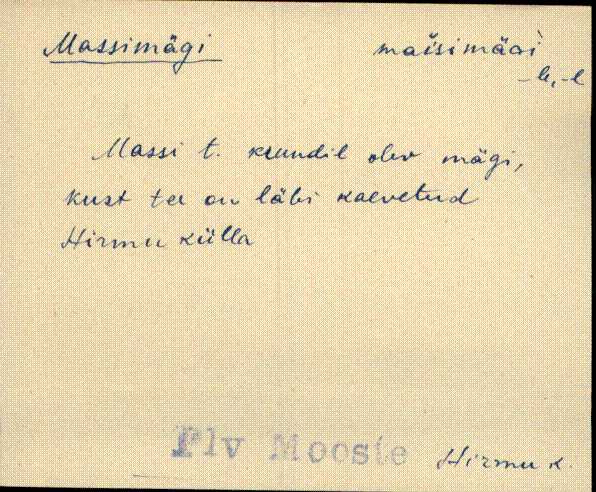 Massimägi maśsimäǵi
-le, -l
Massi t. krundil olev mägi,
kust tee on läbi kaevetud
Hirmu külla
Plv Mooste Hirmu k.